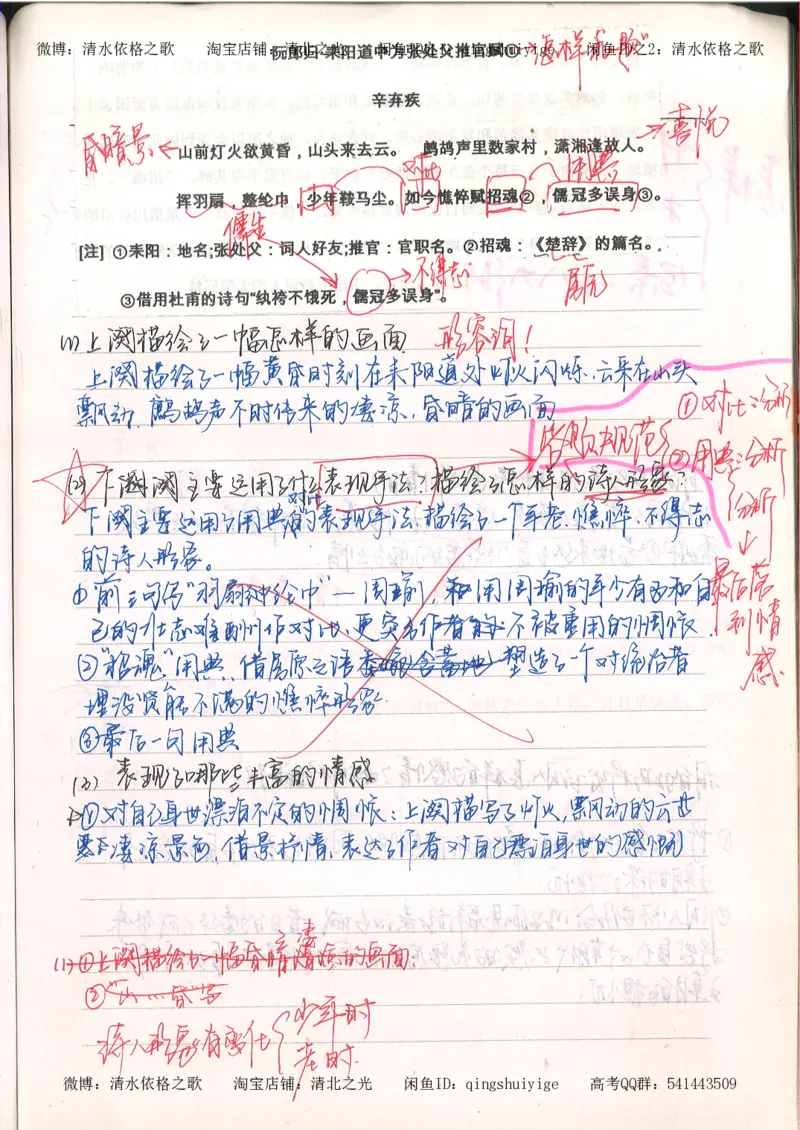 微博：清水依格之歌 淘宝店铺：清北之光 闲鱼ID之2：清水依格之歌
阮郎归·耒阳道中为张处父推官赋①
怎样的"歌"
辛弃疾
喜悦
昏暗景
山前灯火欲黄昏，山头来去云。 鹧鸪声里数家村，潇湘逢故人。
对比
挥羽扇，整纶巾，少年鞍马尘。如今憔悴赋招魂②，儒冠多误身③。
儒生
[注] ①耒阳：地名;张处父：词人好友;推官：官职名。②招魂：《楚辞》的篇名。
不得志
屈原
③借用杜甫的诗句"纨袴不饿死，儒冠多误身"。
(1) 上阕描绘了一幅怎样的画面
形容词！
上阕描绘了一幅黄昏时刻在耒阳道处灯火闪烁、云来在山头
飘动、鹧鸪声不时传来的凄凉、昏暗的画面
①对比：分析
答题规范
②用典：分析
(2) 下阕主要运用了什么表现手法？描绘了怎样的诗人形象？
对比
下阕主要运用了用典的表现手法，描绘了一个年老、憔悴、不得志
的诗人形象。
①前三句写"羽扇纶巾"—周瑜，和用周瑜的年少有为和自
己的壮志难酬作对比，更突出作者不被重用的惆怅
最后落到情感
②"招魂"用典，借屈原之语塑造了一个对统治者
埋没贤能不满的憔悴形象
③最后一句用典
(3) 表现了哪些丰富的情感
①对自己身世漂泊不定的惆怅：上阕描写了灯火，飘动的云等
凄凉景画，借景抒情，表达了作者对自己飘泊身世的感慨
(1)①上阕描绘了一幅昏暗凄凉的画面：
②
诗人形象有变化 少年时
老时
微博：清水依格之歌 淘宝店铺：清北之光 闲鱼ID：qingshuiyige 高考QQ群：541443509